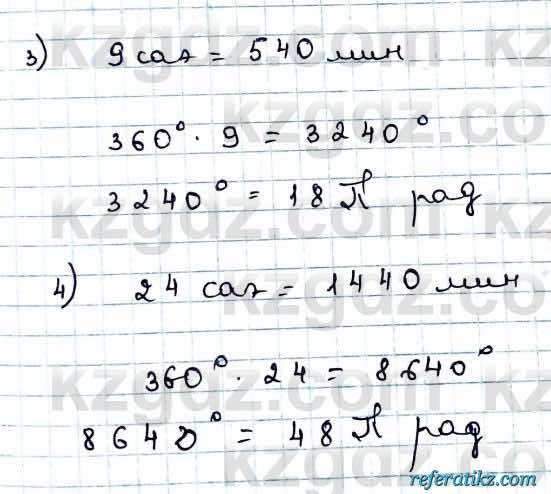 3) 9 сағ = 540 мин
360° · 9 = 3240°
3240° = 18 П рад
4) 24 сағ = 1440 мин
360° · 24 = 8640°
8640° = 48 П рад
kzgdz.com
referatikz.com